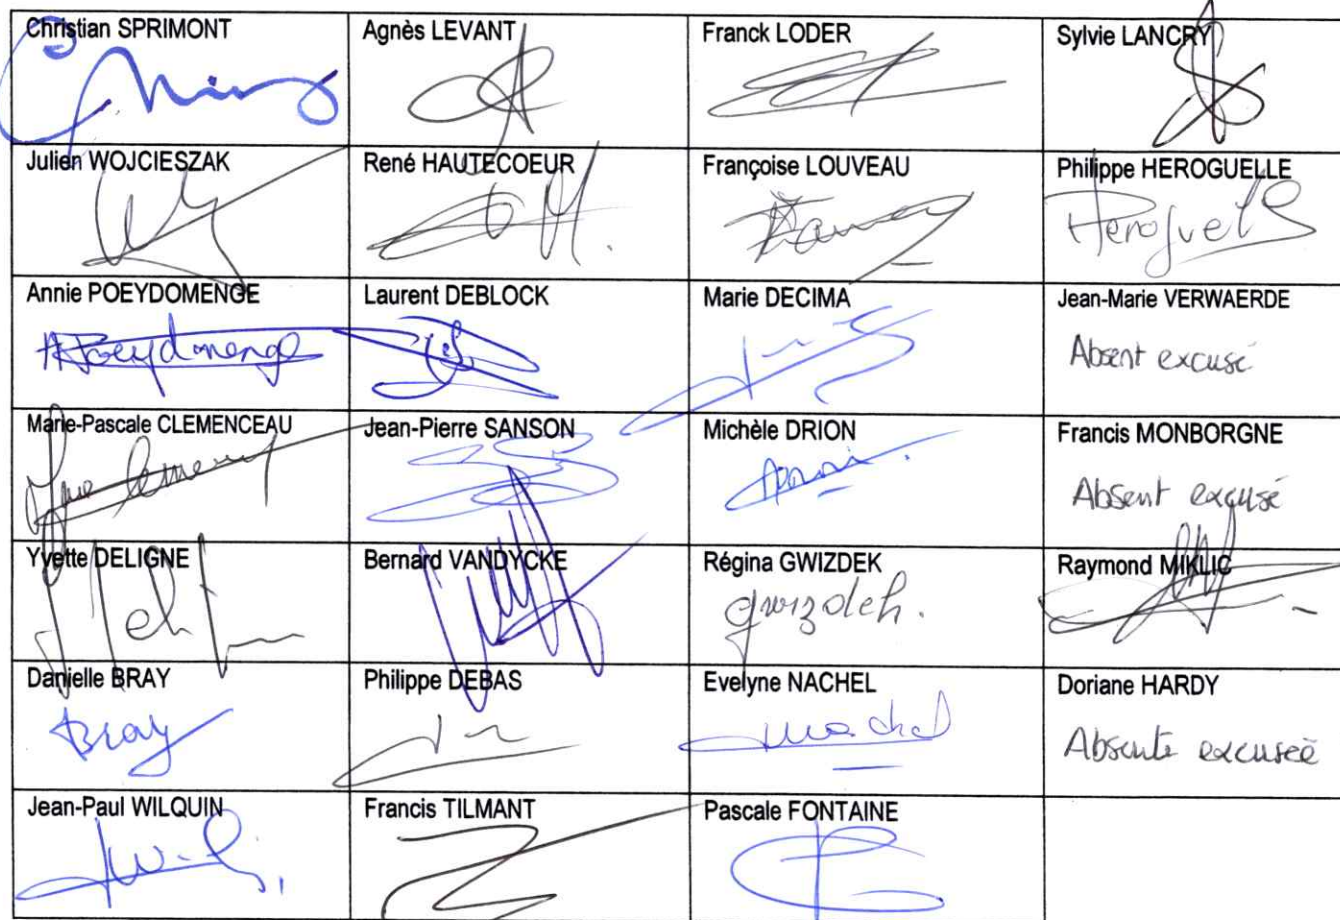 Christian SPRIMONT
Agnès LEVANT
Franck LODER
Sylvie LANCRY
Julien WOJCIESZAK
René HAUTECOEUR
Françoise LOUVEAU
Philippe HEROGUELLE
Annie POEYDOMENGE
APoeydomenge
Laurent DEBLOCK
Marie DECIMA
Jean-Marie VERWAERDE
Absent excusé
Marie-Pascale CLEMENCEAU
Jean-Pierre SANSON
Michèle DRION
Francis MONBORGNE
Absent excusé
Yvette DELIGNE
Bernard VANDYCKE
Régina GWIZDEK
gwizdek.
Raymond MIKLIC
Danielle BRAY
Bray
Philippe DEBAS
Evelyne NACHEL
nachel
Doriane HARDY
Absente excuseé
Jean-Paul WILQUIN
Francis TILMANT
Pascale FONTAINE